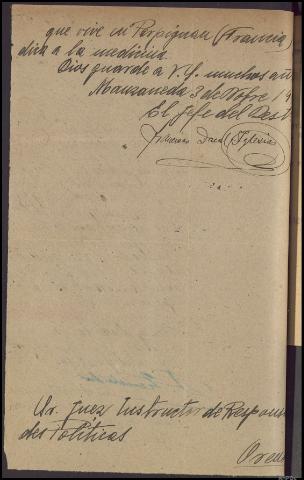 que vive en Perpignan (Francia)
dica a la medicina.
Dios guarde a V.S. muchos añ
Manzaneda 3 de Nbre 19
El Jefe del Dest
Iglesias
Sr. Juez Instructor de Respons
des Politicas
Orens